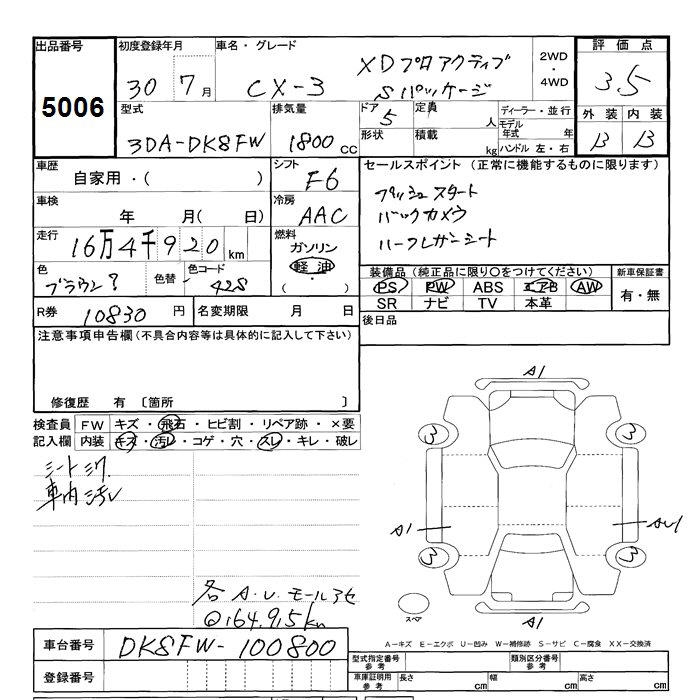 出品番号 5006
初度登録年月 30 7月
車名・グレード CX-3 XDプロアクティブ Sパッケージ
2WD・4WD
評価点 3.5
外装 内装
B B
型式 3DA-DK8FW
排気量 1800cc
ドア 5
形状
定員 人
積載 kg
ディーラー・並行
モデル年式 年
ハンドル 左・右
車歴 自家用・( )
シフト F6
セールスポイント (正常に機能するものに限ります)
プッシュスタート
バックカメラ
ハーフレザーシート
車検 年 月( 日)
冷房 AAC
走行 16万4千920km
燃料 ガソリン
軽油
( )
色 ブラウン?
色替
色コード 42S
装備品(純正品に限り○をつけてください)
PS PW ABS エアB AW
SR ナビ TV 本革
新車保証書
有・無
R券 10830円
名変期限 月 日
後日品
注意事項申告欄(不具合内容等は具体的に記入して下さい)
修復歴 有 〔箇所 〕
検査員記入欄
FW キズ・飛石・ヒビ割・リペア跡・×要
内装 キズ・汚レ・コゲ・穴・スレ・キレ・破レ
シートシワ
車内汚レ
各A.U.モールアセ
@164,915km
A1
3 3
A1
3 3
A1
スペア
A-キズ E-エクボ U-凹み W-補修跡 S-サビ C-腐食 XX-交換済
車台番号 DK8FW-100800
登録番号
型式指定番号 参考
類別区分番号 参考
車庫証明用 参考
長さ cm
幅 cm
高さ cm